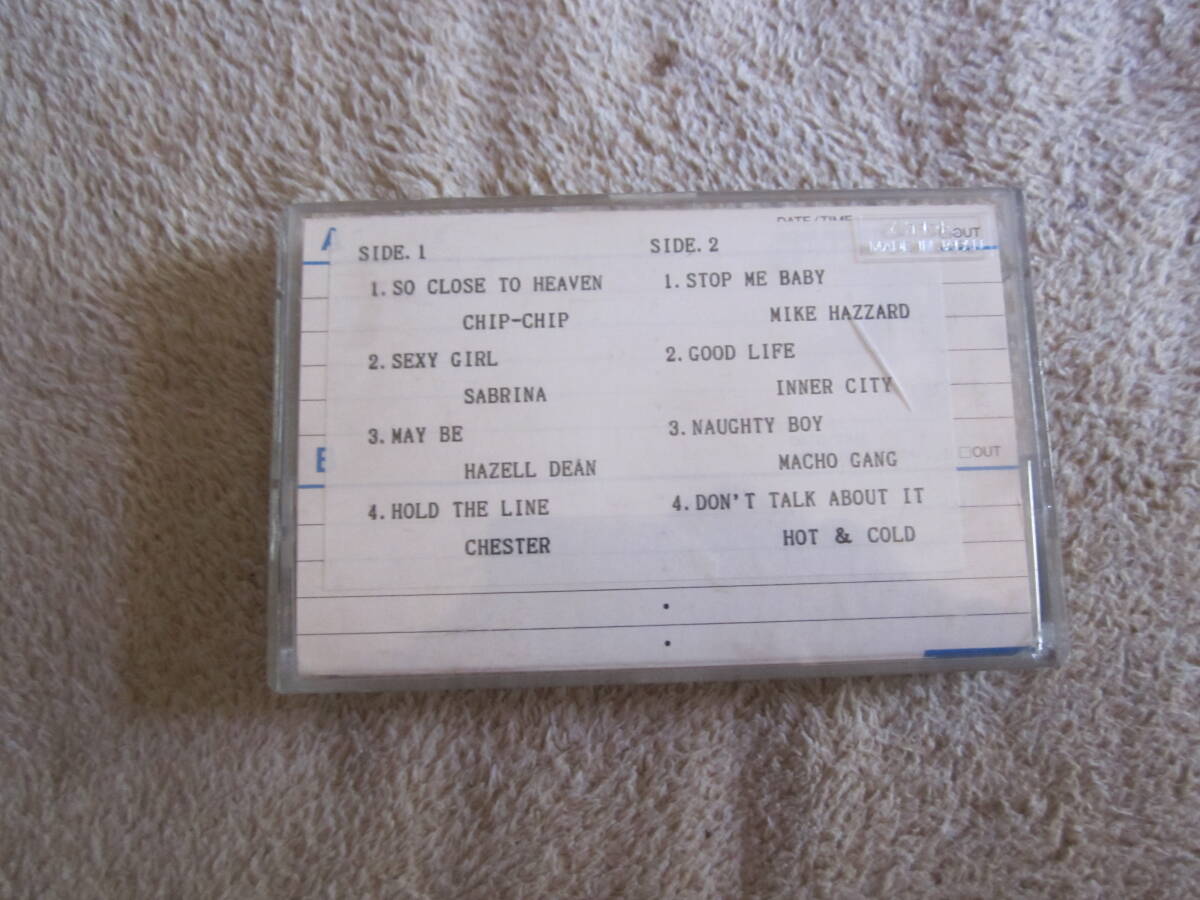 DATE/TIME
A
OUT
SIDE. 1
1. SO CLOSE TO HEAVEN
CHIP-CHIP
2. SEXY GIRL
SABRINA
3. MAY BE
HAZELL DEAN
4. HOLD THE LINE
CHESTER
SIDE. 2
1. STOP ME BABY
MIKE HAZZARD
2. GOOD LIFE
INNER CITY
3. NAUGHTY BOY
MACHO GANG
4. DON'T TALK ABOUT IT
HOT & COLD
B
□OUT